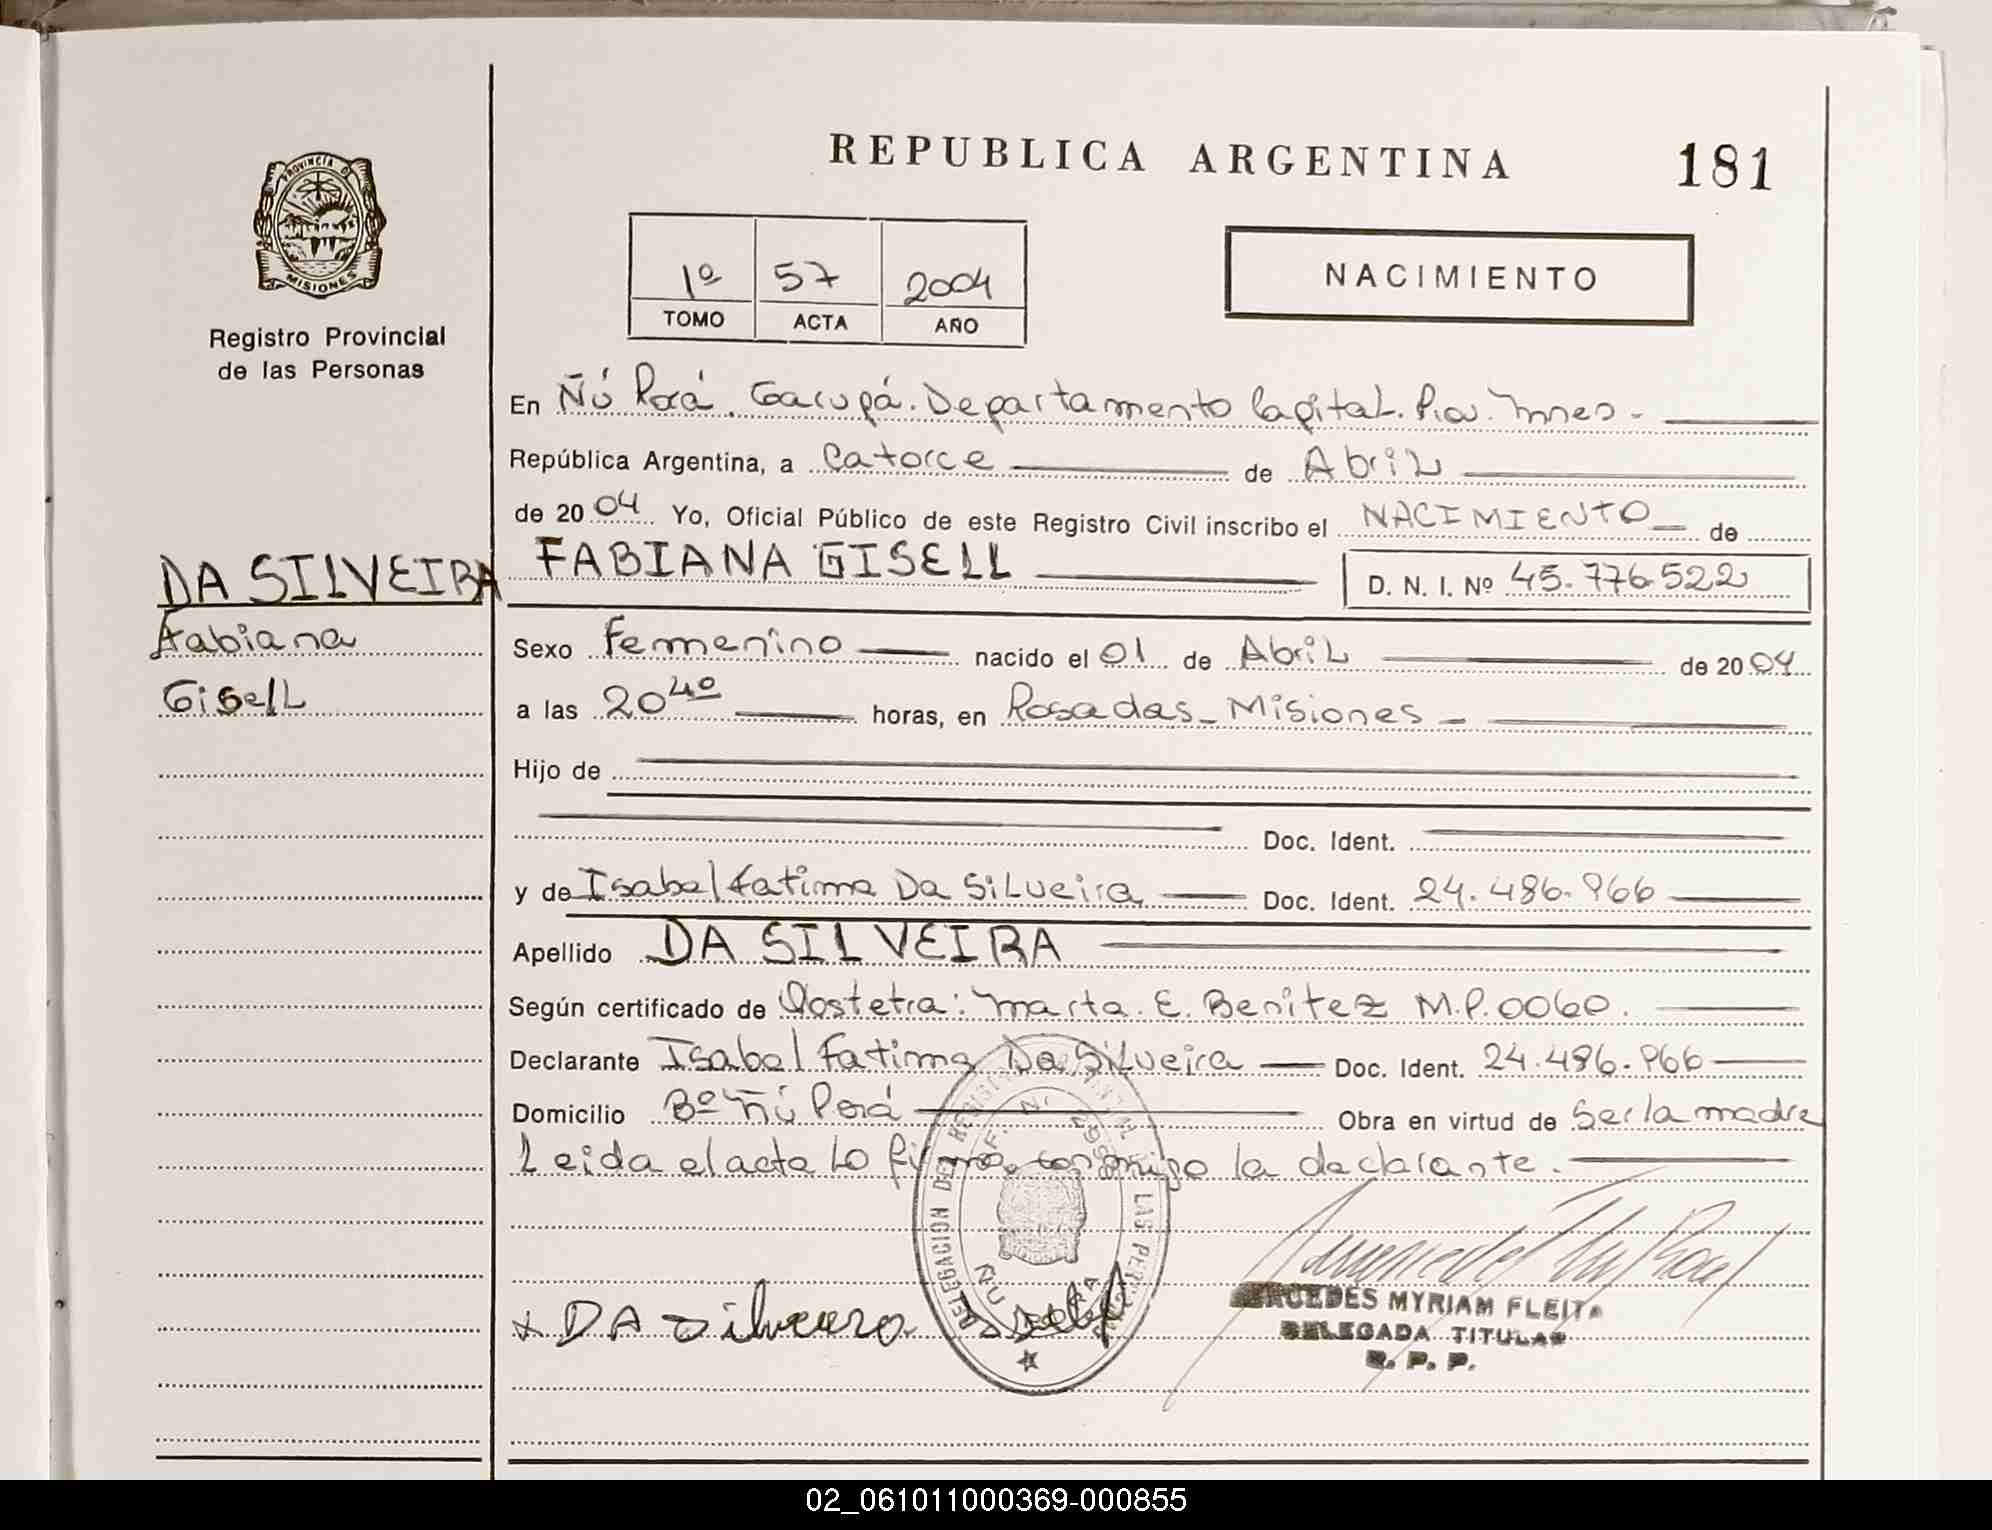 REPUBLICA ARGENTINA
181
PROVINCIA D
MISIONES
Registro Provincial
de las Personas
1º 57 2004
TOMO ACTA AÑO
NACIMIENTO
En Ñú Porá. Garupá. Departamento Capital. Pcia. Mnes -
República Argentina, a Catorce de Abril
de 2004 Yo, Oficial Público de este Registro Civil inscribo el NACIMIENTO de
DA SILVEIRA
Fabiana
Gisell
FABIANA GISELL
D. N. I. Nº 45.776.522
Sexo Femenino nacido el 01 de Abril de 2004
a las 20 40 horas, en Posadas - Misiones -
Hijo de
Doc. Ident.
y de Isabel Fatima Da Silveira Doc. Ident. 24.486.966
Apellido DA SILVEIRA
Según certificado de Obstetra: Marta. E. Benitez M.P.0060.
Declarante Isabel Fatima Da Silveira Doc. Ident. 24.486.966
Domicilio Bº Ñú Porá Obra en virtud de Ser la madre
Leida el acta Lo firma conmigo la declarante.
DELEGACION DEL REGISTRO LAS PER
ÑU
x DA Silveira
MERCEDES MYRIAM FLEITA
DELEGADA TITULAR
R. P. P.
02_061011000369-000855